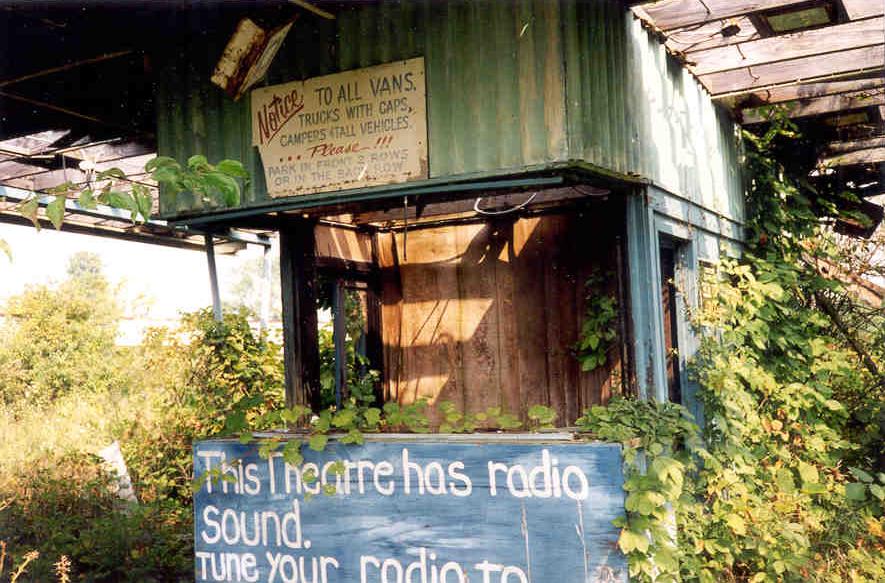 Notice TO ALL VANS,
TRUCKS WITH CAPS,
CAMPERS & TALL VEHICLES.
... Please — !!!
PARK IN FRONT 2 ROWS
OR IN THE BACK ROW
This Theatre has radio
sound.
TUNE YOUR radio to